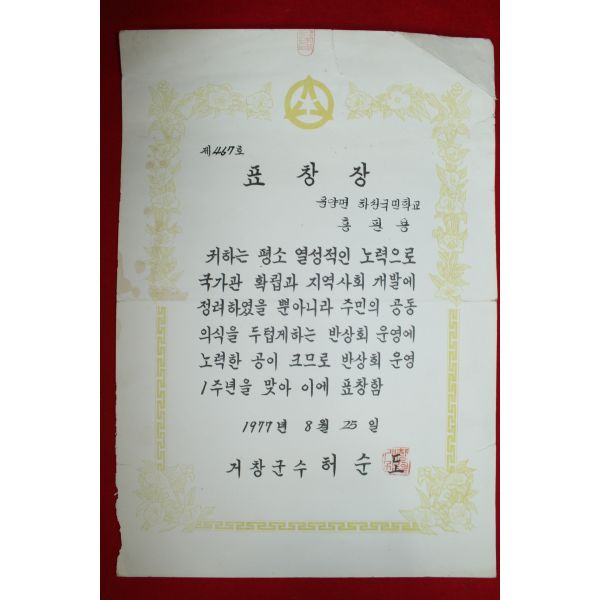 제467호
표창장
웅양면 화천국민학교
홍필용
귀하는 평소 열성적인 노력으로
국가관 확립과 지역사회 개발에
정려하였을 뿐아니라 주민의 공동
의식을 두텁게하는 반상회 운영에
노력한 공이 크므로 반상회 운영
1주년을 맞아 이에 표창함
1977년 8월 25일
거창군수 허순도